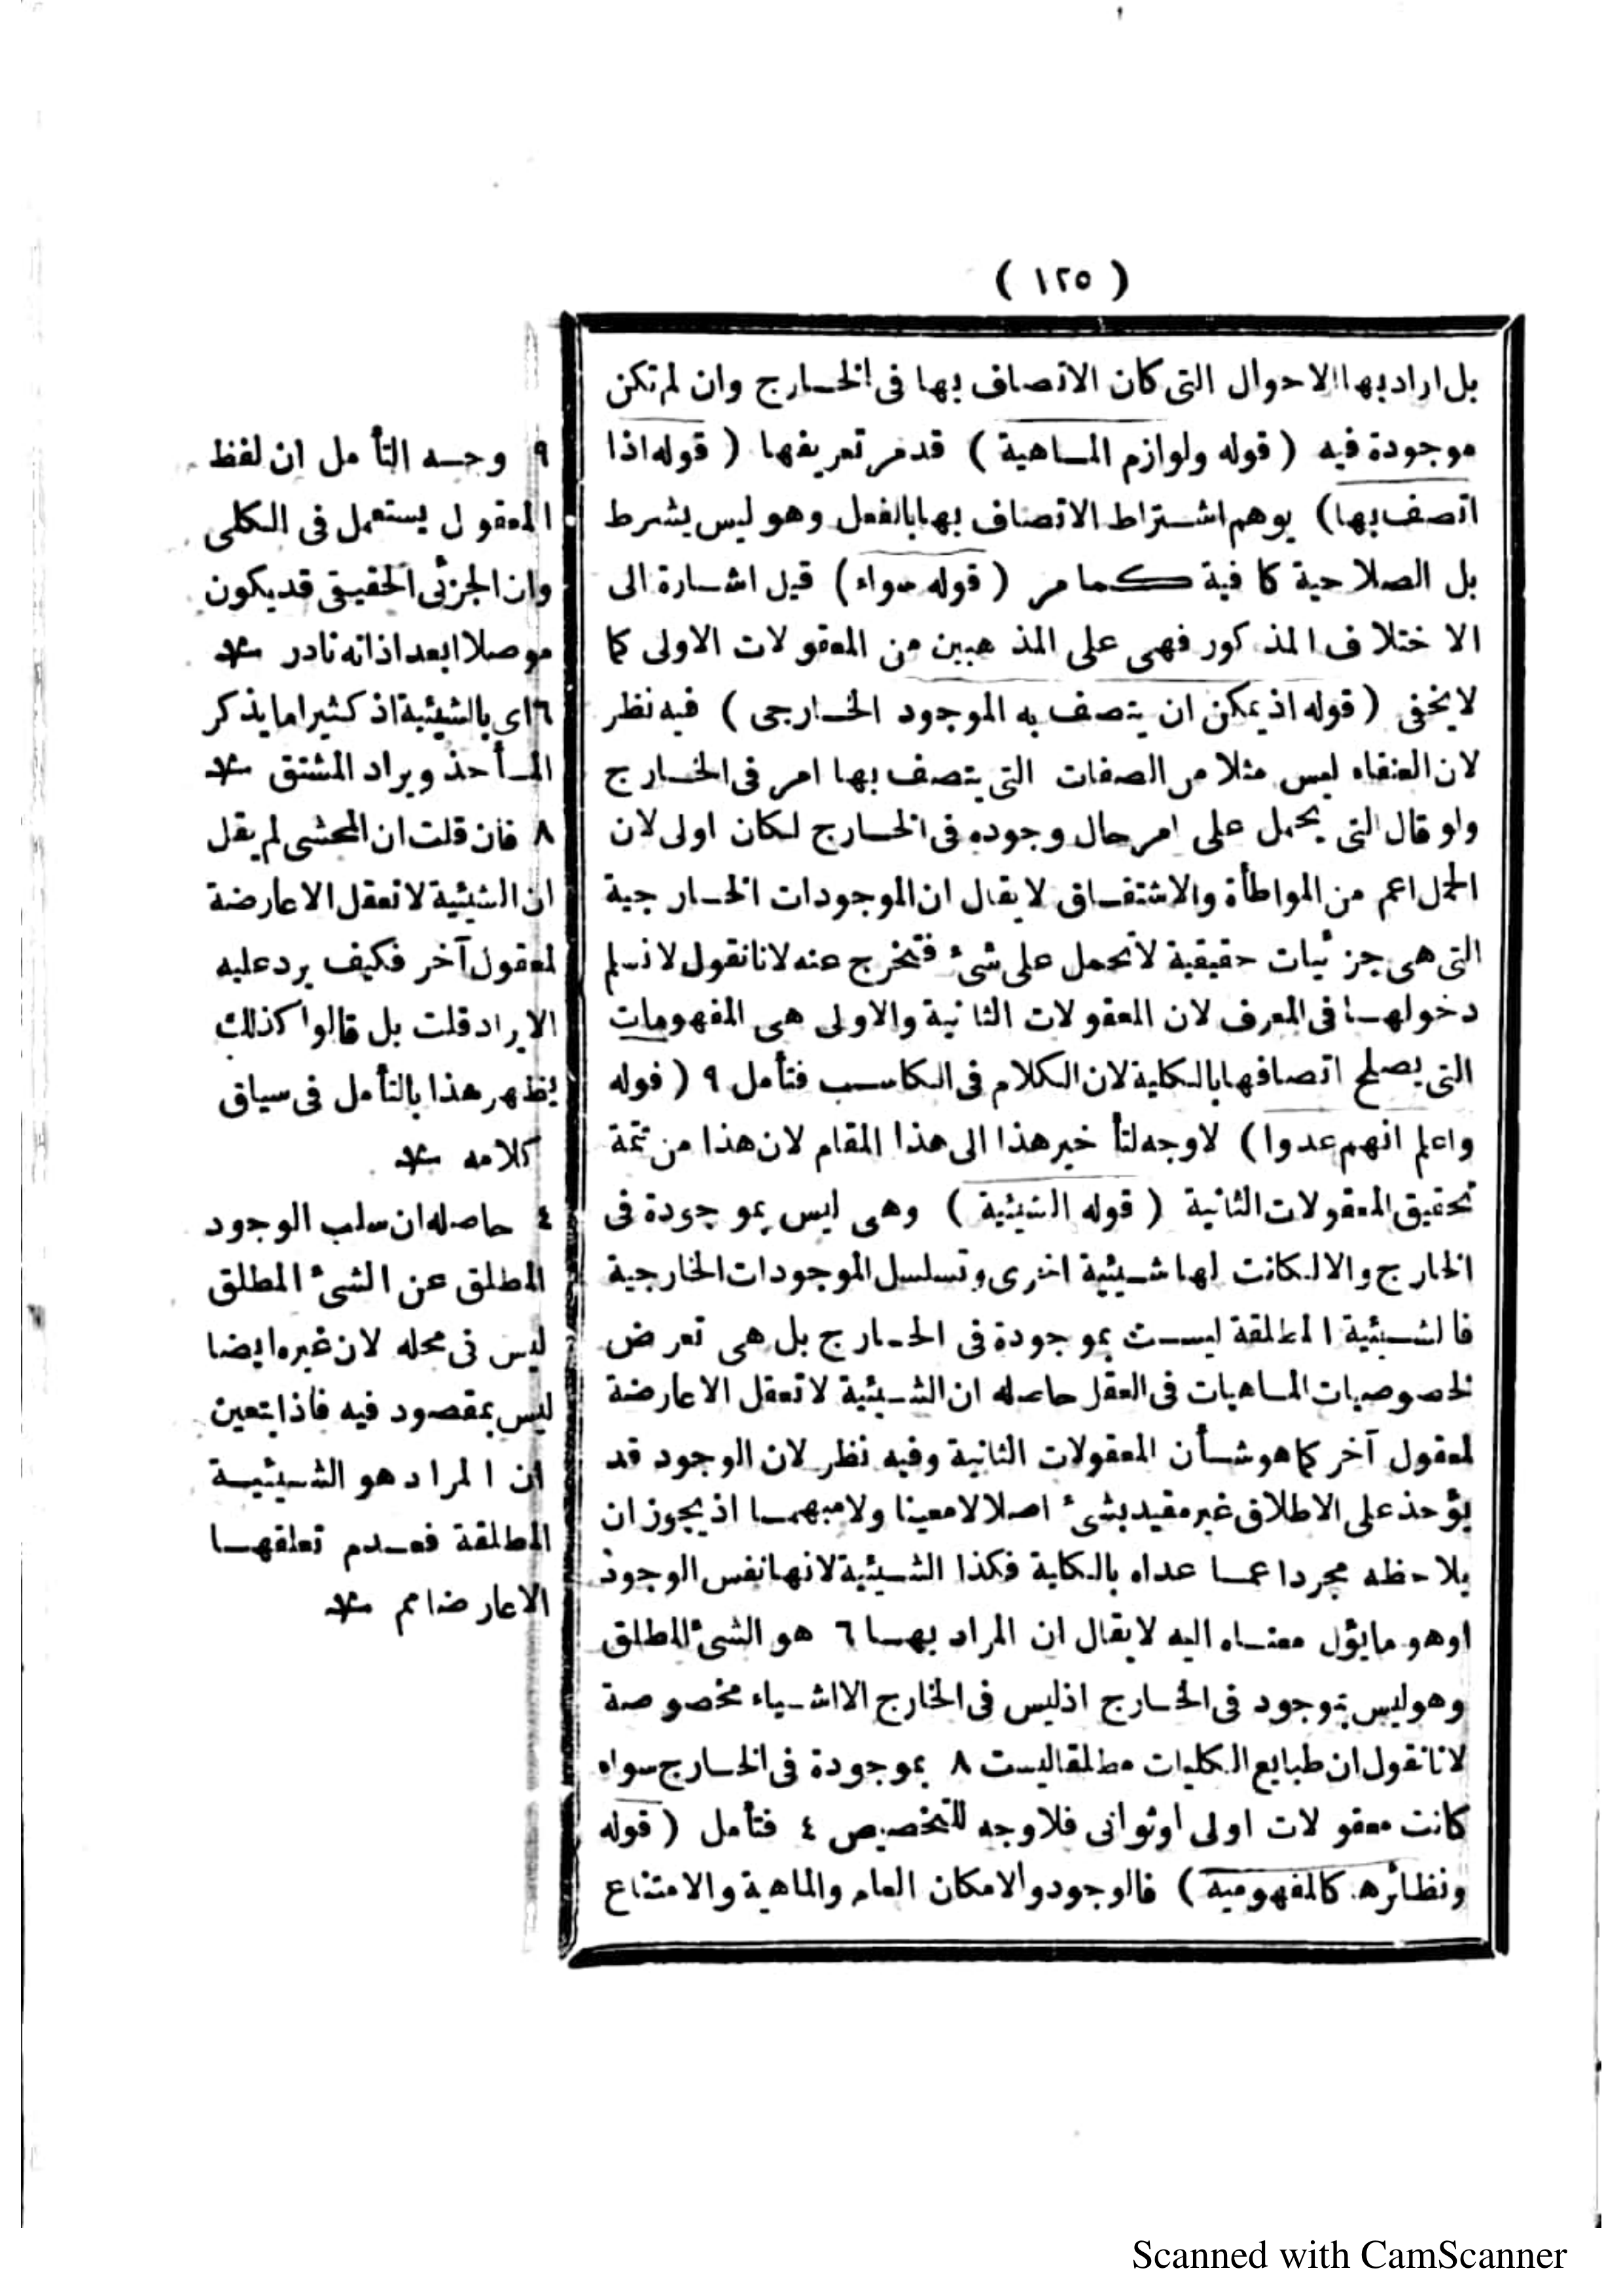 ( ١٢٥ )
بل اراد بها الاحوال التى كان الاتصاف بها فى الخارج وان لم تكن
موجودة فيه ( قوله ولوازم الماهية ) قد مر تعريفها ( قوله اذا
اتصف بها ) يوهم اشتراط الاتصاف بها بالفعل وهو ليس بشرط
بل الصلاحية كافية كما مر ( قوله سواء ) قيل اشارة الى
الاختلاف المذكور فهى على المذهبين من المعقولات الاولى كما
لا يخفى ( قوله اذ يمكن ان يتصف به الموجود الخارجى ) فيه نظر
لان العنقاء ليس مثلا من الصفات التى يتصف بها امر فى الخارج
ولو قال التى يحمل على امر حال وجوده فى الخارج لكان اولى لان
الحمل اعم من المواطأة والاشتقاق لا يقال ان الموجودات الخارجية
التى هى جزئيات حقيقية لا تحمل على شئ فتخرج عنه لانا نقول لا نسلم
دخولها فى المعرف لان المعقولات الثانية والاولى هى المفهومات
التى يصلح اتصافها بالكلية لان الكلام فى الكاسب فتأمل ٩ ( قوله
واعلم انهم عدوا ) لا وجه لتأخير هذا الى هذا المقام لان هذا من تتمة
تحقيق المعقولات الثانية ( قوله الشيئية ) وهى ليس بموجودة فى
الخارج والا لكانت لها شيئية اخرى وتسلسل الموجودات الخارجية
فالشيئية المطلقة ليست بموجودة فى الخارج بل هى تعرض
لخصوصيات الماهيات فى العقل حاصله ان الشيئية لا تعقل الا عارضة
لمعقول آخر كما هو شأن المعقولات الثانية وفيه نظر لان الوجود قد
يؤخذ على الاطلاق غير مقيد بشئ اصلا لا معينا ولا مبهما اذ يجوز ان
يلاحظه مجردا عما عداه بالكلية فكذا الشيئية لانها نفس الوجود
او هو ما يؤل معناه اليه لا يقال ان المراد بها ٦ هو الشئ المطلق
وهو ليس بموجود فى الخارج اذ ليس فى الخارج الا اشياء مخصوصة
لانا نقول ان طبايع الكليات مطلقا ليست ٨ بموجودة فى الخارج سواء
كانت معقولات اولى او ثوانى فلا وجه للتخصيص ٤ فتأمل ( قوله
ونظائره كالمفهومية ) فالوجود والامكان العام والماهية والامتناع
٩ وجه التأمل ان لفظ
المعقول يستعمل فى الكلى
وان الجزئى الحقيقى قد يكون
موصلا ابعد اذ انه نادر *
٦ اى بالشيئية اذ كثيرا ما يذكر
المأخذ ويراد المشتق *
٨ فان قلت ان المحشى لم يقل
ان الشيئية لا تعقل الا عارضة
لمعقول آخر فكيف يرد عليه
الايراد قلت بل قالوا كذلك
يظهر هذا بالتأمل فى سياق
كلامه *
٤ حاصله ان سلب الوجود
المطلق عن الشئ المطلق
ليس فى محله لان غيره ايضا
ليس بمقصود فيه فاذا تعين
ان المراد هو الشيئية
المطلقة فعدم تعلقها
الا عارضا مم *
Scanned with CamScanner